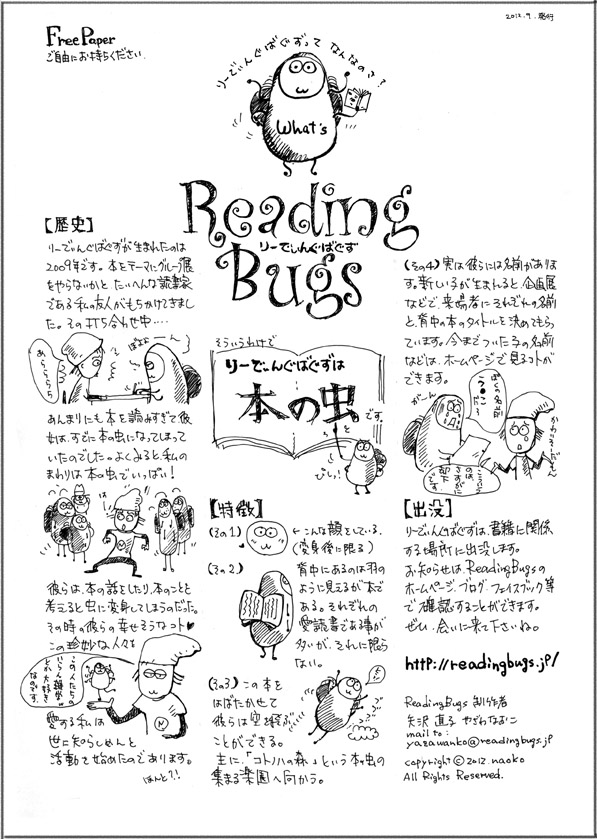 2012.9.発行
Free Paper
ご自由にお持ちください
りーでぃんぐばぐずって なんなのさ?
What's
Reading
りーでぃんぐ・ばぐず
Bugs
【歴史】
りーでぃんぐばぐずが生まれたのは
2009年です。本をテーマにグループ展
をやらないかと たいへんな読書家
である私の友人がもちかけてきまし
た。その打ち合わせ中・・・・
あらららら
ばぶーん
あんまりにも本を読みすぎて彼
女は、すでに本の虫になってしまって
いたのでした。よくみると、私の
まわりは本の虫でいっぱい!
は
彼らは、本の話をしたり、本のことを
考えると虫に変身してしまうのだった。
その時の彼らの幸せそうなコト♥
この珍妙な人々を
この人たちの
いろんな雑学が
とか大好き
なのです。
愛する私は
世に知らしめんと
活動を始めたのであります。
ほんと?!
そういうわけで
りーでぃんぐばぐずは
本の虫
です。
と
びしっ!
【特徴】
(その1)
←こんな顔をしている。
(変身後に限る)
(その2)
背中にあるのは羽の
ように見えるが本で
ある。それぞれの
愛読書である事が
多いが、それに限ら
ない。
(その3) この本を
はばたかせて
彼らは空を飛ぶ
ことができる。
主に、「コトノハの森」という本の虫の
集まる楽園へ向かう。
(その4) 実は彼らには名前がありま
す。新しい子が生まれると、企画展
などで、来場者にそれぞれの名前
と背中の本のタイトルを決めてもら
っています。今までついた子の名前
などは、ホームページで見るコトが
できます。
がーん
ぼくの名前
う●こ
だ〜
こういう
のは、
さすがに
却下
です
かわいそうだもん
【出没】
りーでぃんぐばぐずは、書籍に関係
する場所に出没します。
お知らせは、Reading Bugsの
ホームページ、ブログ、フェイスブック等
で確認することができます。
ぜひ、会いに来て下さいね。
http://readingbugs.jp/
Reading Bugs 制作者
矢沢 直子 やざわなおこ
mail to:
yazawanko@readingbugs.jp
copyright © 2012.naoko
All Rights Reserved.